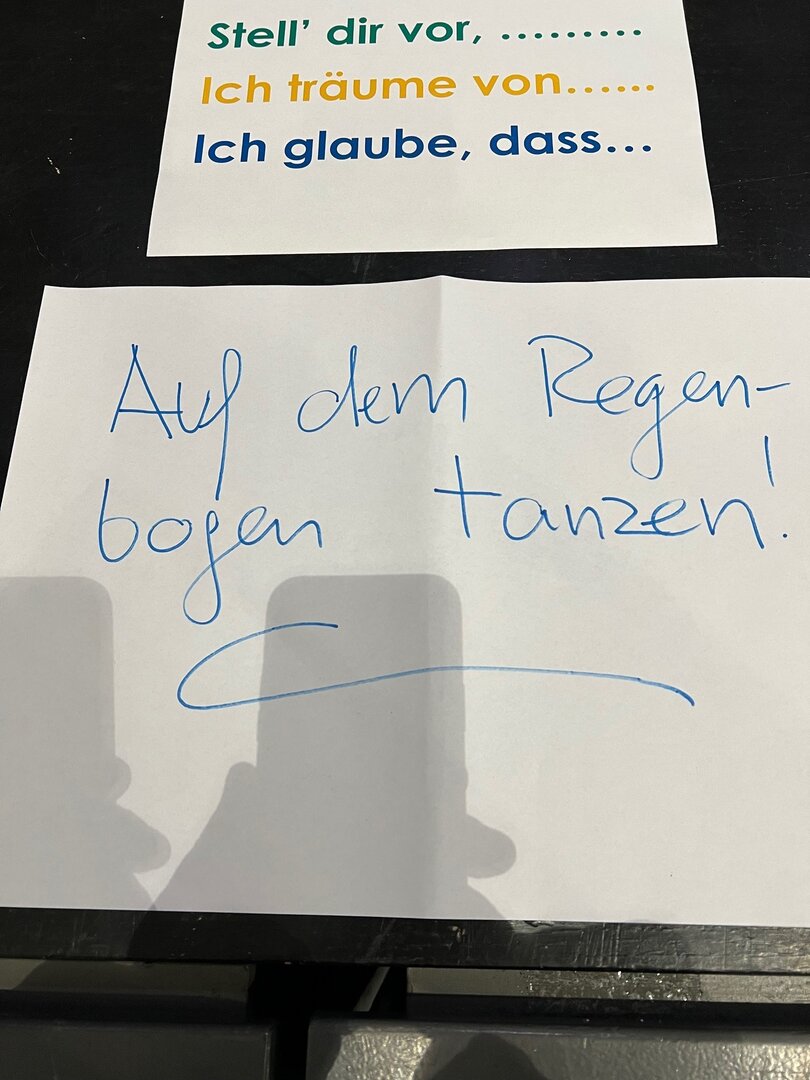 Stell' dir vor, .........
Ich träume von......
Ich glaube, dass...
Auf dem Regen-
bogen tanzen!